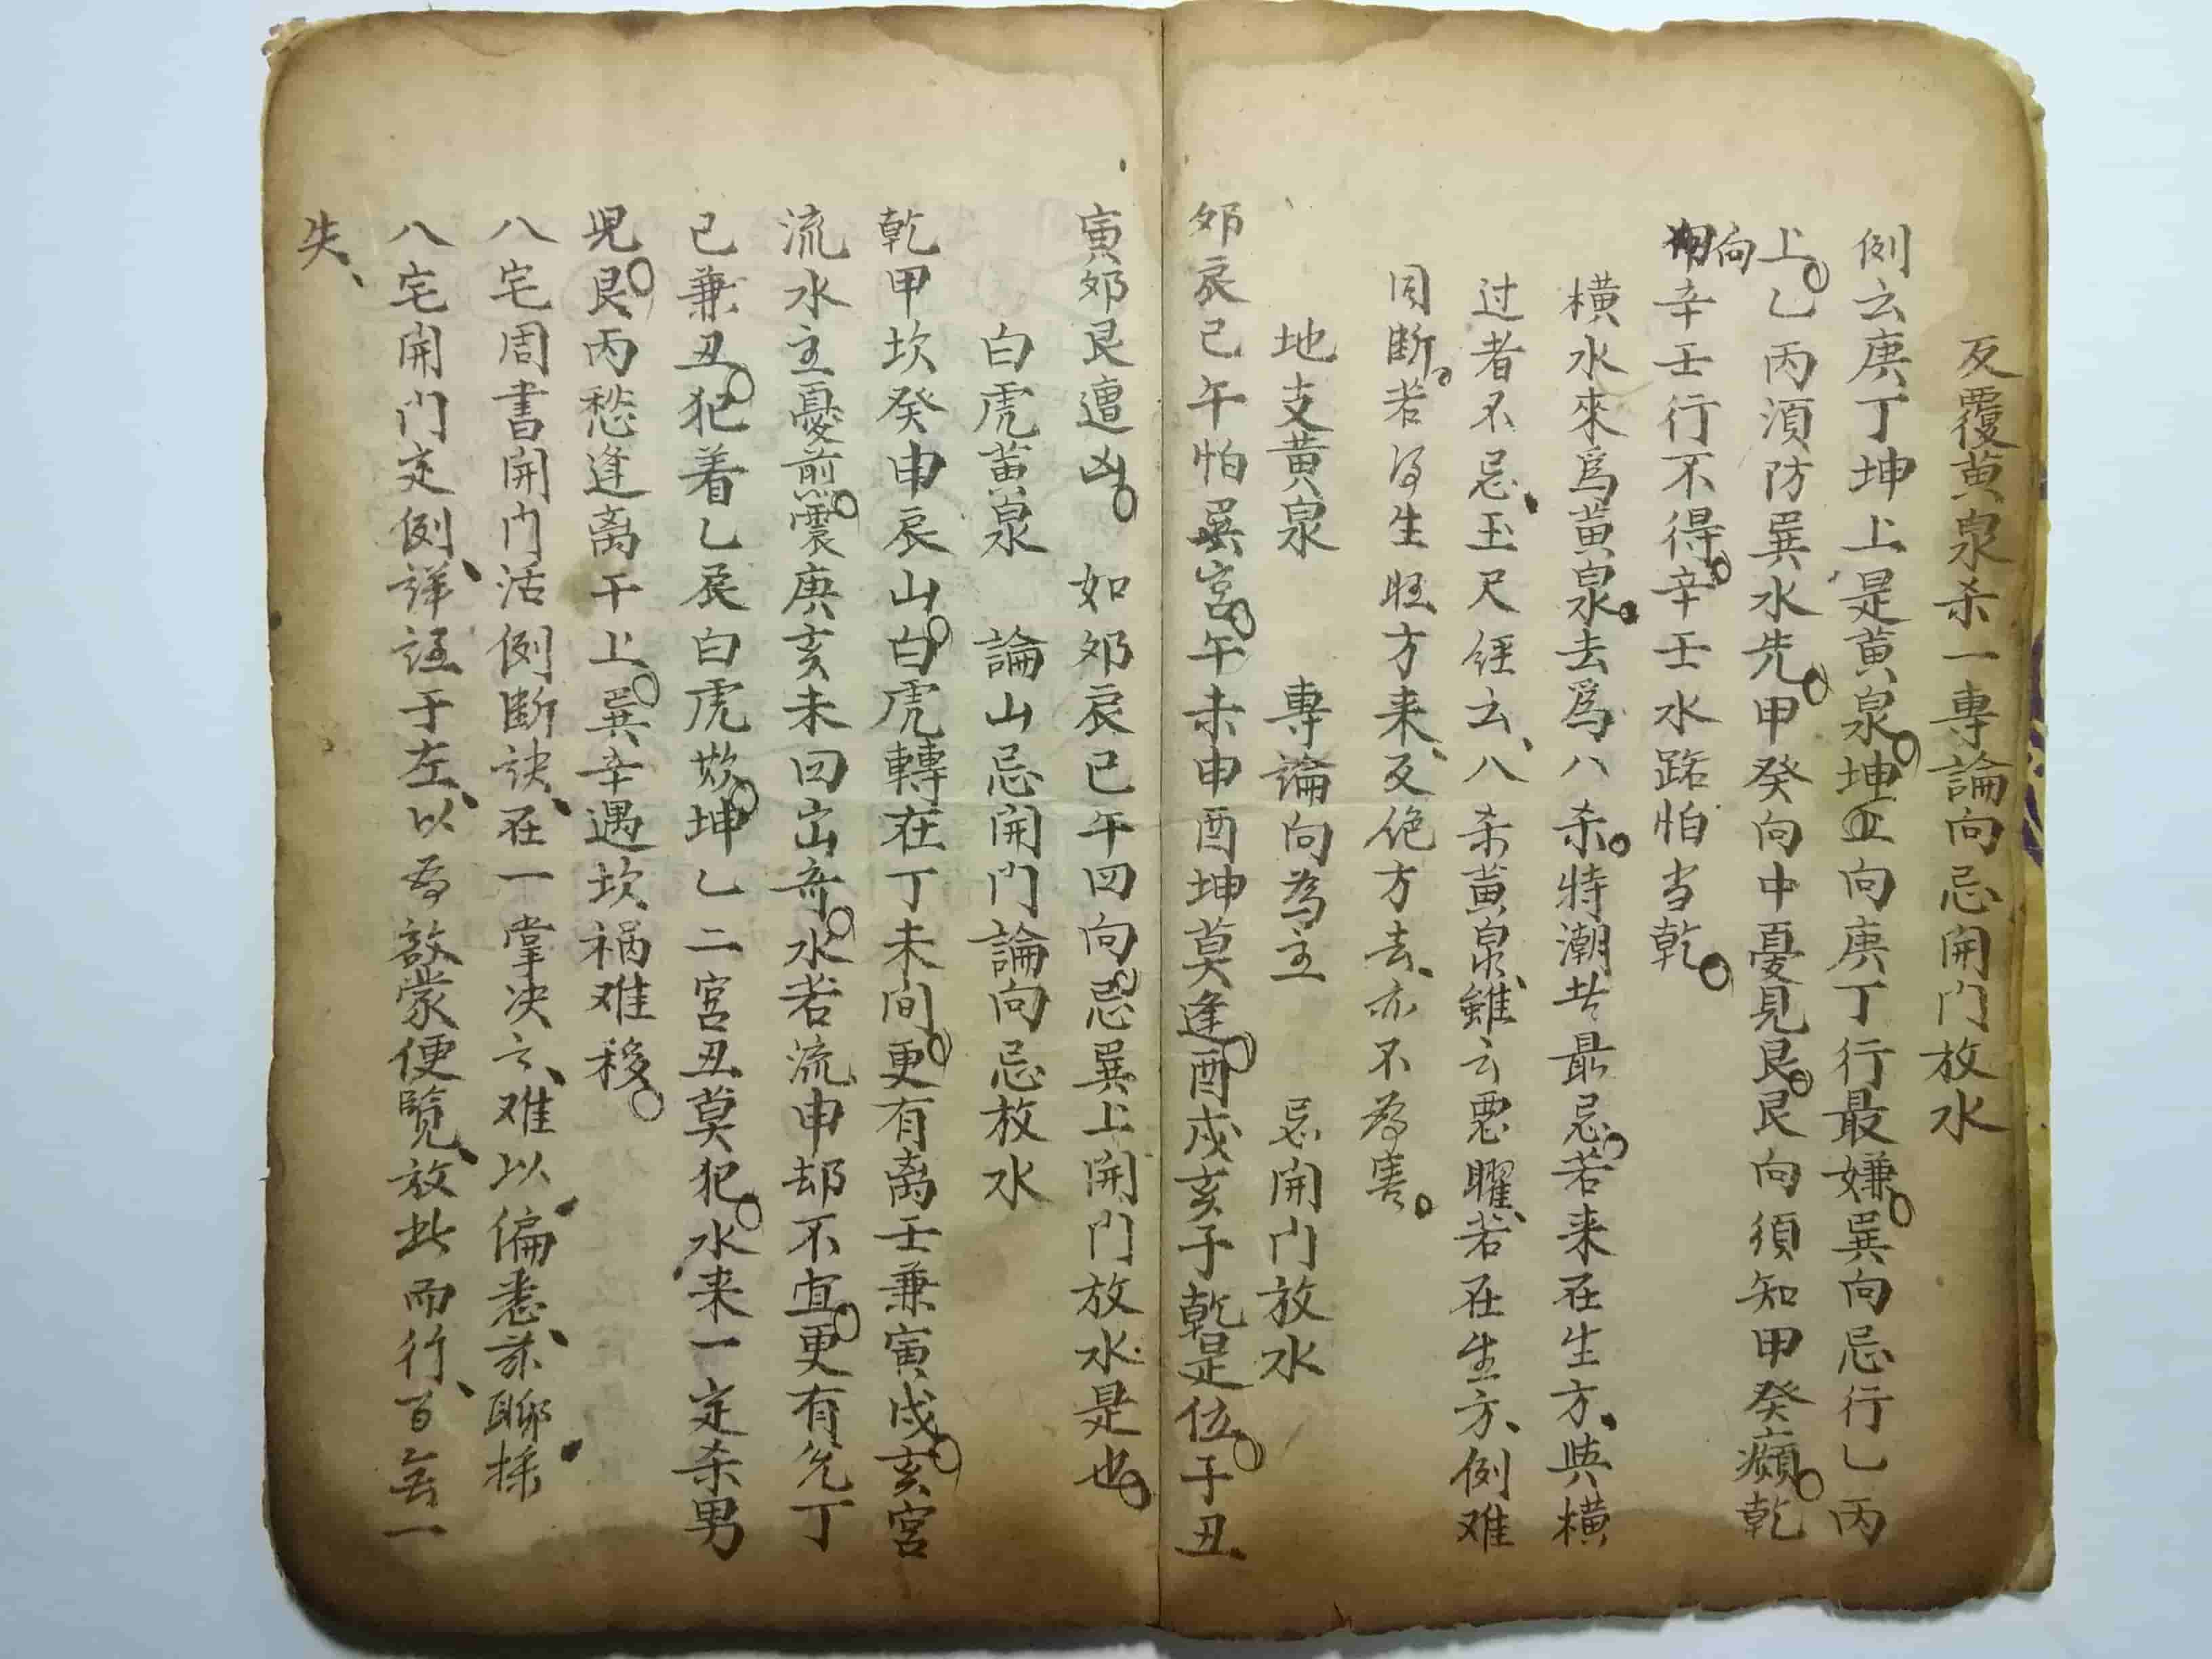 反覆黄泉杀一專論向忌開門放水
例云庚丁坤上是黄泉坤向庚丁行最嫌巽向忌行乙丙
上乙丙湏防巽水先甲癸向中憂見艮艮向須知甲癸癲乾
向辛壬行不得辛壬水路怕当乾
横水來爲黄泉去爲八杀特潮者最忌若来在生方與横
过者不忌玉尺經云八杀黄泉雖云悪曜若在生方例难
同断若得生旺方来反绝方去亦不為害
地支黄泉 專論向為主 忌開门放水
卯辰巳午怕巽宫午未申酉坤莫逢酉戌亥子乾是位子丑
寅卯艮遭凶 如卯辰巳午四向忌巽上開门放水是也
白虎黄泉 論山忌開门論向忌放水
乾甲坎癸申辰山白虎轉在丁未间更有离壬兼寅戌亥宫
流水主憂煎震庚亥未四山奇水若流申却不宜更有兑丁
巳兼丑犯着乙辰白虎欺坤乙二宫丑莫犯水来一定杀男
児艮丙愁逢离干上巽辛遇坎禍难移
八宅周書開门活例断诀在一掌决云难以偏悉兹聊採
八宅開门定例詳註于左以為啟蒙便覧放此而行百無一
失